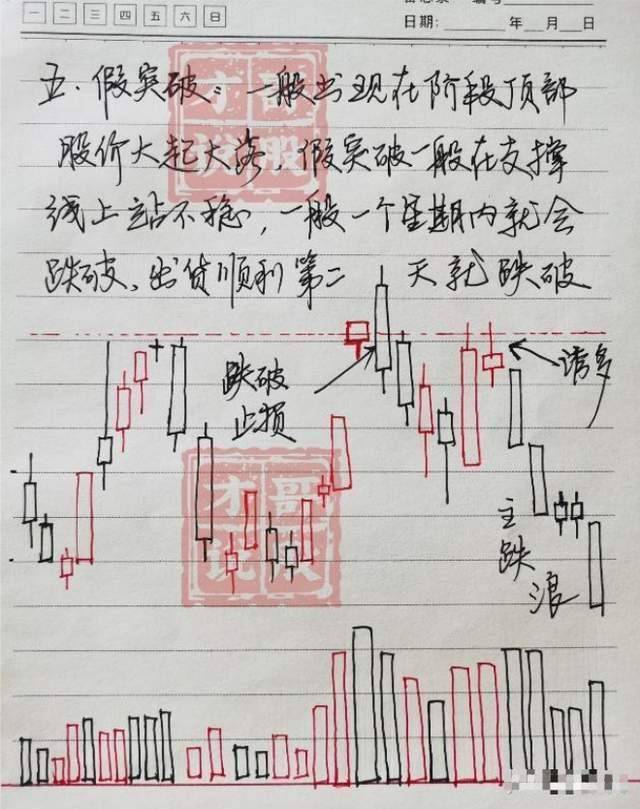 一 二 三 四 五 六 日
日期: 年 月 日
五、假突破:一般出现在阶段顶部
股价大起大落,假突破一般在支撑
线上站不稳,一般一个星期内就会
跌破、出货顺利第二 天就跌破
跌破
止损
诱多
主跌浪
才哥
说股
才哥
说股